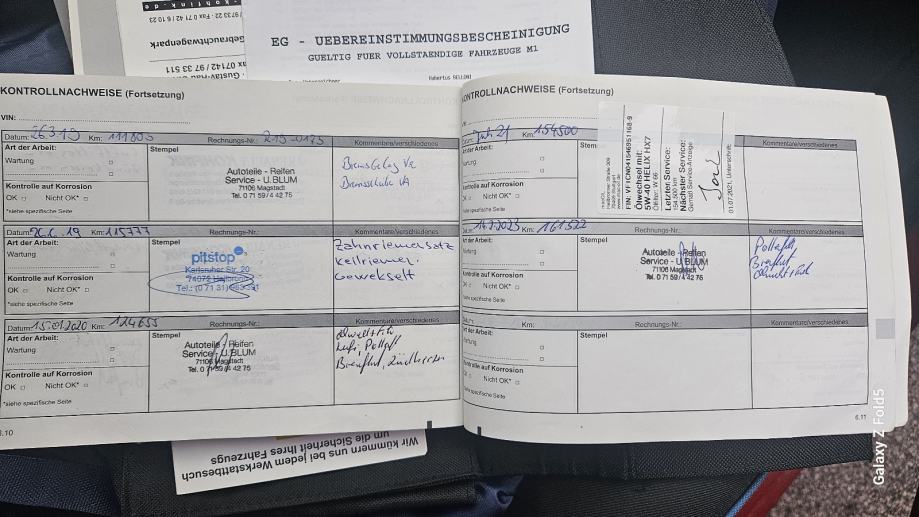 EG - UEBEREINSTIMMUNGSBESCHEINIGUNG
GUELTIG FUER VOLLSTAENDIGE FAHRZEUGE M1
9733 22 · Fax 0 71 42 / 6 10 23
Gebrauchtwagenpark
ax 07142 / 97 33 511
KONTROLLNACHWEISE (Fortsetzung)
VIN:
Datum: 26.3.19 Km: 111800 Rechnungs-Nr.: 219-0175 Kommentare/verschiedenes
Art der Arbeit: Stempel
Wartung
Kontrolle auf Korrosion
OK Nicht OK*
*siehe spezifische Seite
Autoteile - Reifen
Service - U.BLUM
71106 Magstadt
Tel. 0 71 59 / 4 42 75
Bremsbelag VA
Bremsscheibe VA
Datum: 26.6.19 Km: 115777 Rechnungs-Nr.: Kommentare/verschiedenes
Art der Arbeit: Stempel
Wartung
Kontrolle auf Korrosion
OK Nicht OK*
*siehe spezifische Seite
pitstop
Karlsruher Str. 20
74072 Heilbronn
Zahnriemensatz
Keilriemen
Gewekselt
Datum: 15.01.2020 Km: 124655 Rechnungs-Nr.: Kommentare/verschiedenes
Art der Arbeit: Stempel
Wartung
Kontrolle auf Korrosion
OK Nicht OK*
*siehe spezifische Seite
Autoteile - Reifen
Service - U.BLUM
71106 Magstadt
Tel. 0 71 59 / 4 42 75
Luft, Pollenf.
6.10
Wir kümmern uns bei jedem Werkstattbesuch
um die Sicherheit Ihres Fahrzeugs
KONTROLLNACHWEISE (Fortsetzung)
VIN:
Datum: Juli 21 Km: 154500
Art der Arbeit: Stem
Wartung
Kontrolle auf Korrosion
OK Nicht OK*
*siehe spezifische Seite
Kommentare/verschiedenes
Ölwechsel mit:
5W-40 HELIX HX7
Letzter Service:
154.500 km
Nächster Service:
Gemäß Service-Anzeige
01.07.2021, Unterschrift:
Km: 161522 Rechnungs-Nr.: Kommentare/verschiedenes
Art der Arbeit: Stempel
Wartung
Kontrolle auf Korrosion
OK Nicht OK*
*siehe spezifische Seite
Autoteile - Reifen
Service - U.BLUM
71106 Magstadt
Tel. 0 71 59 / 4 42 75
Datum: Km: Rechnungs-Nr.: Kommentare/verschiedenes
Art der Arbeit: Stempel
Wartung
Kontrolle auf Korrosion
OK Nicht OK*
*siehe spezifische Seite
6.11
Galaxy Z Fold5